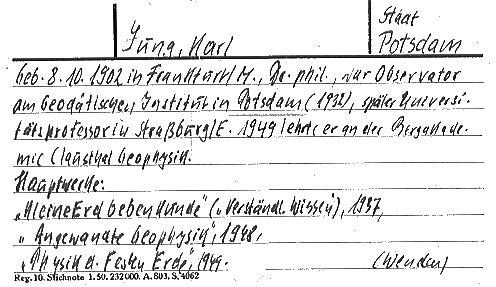 Jung, Karl
Staat
Potsdam
geb. 8.10.1902 in Frankfurt/M., Dr. phil., war Observator
am Geodätischen Institut in Potsdam (1932), später Universi-
tätsprofessor in Straßburg/E. 1949 lehrte er an der Bergakade-
mie Clausthal Geophysik.
Hauptwerke:
„Kleine Erdbebenkunde" („Verständl. Wissen), 1937,
„Angewandte Geophysik", 1948,
„Physik d. Festen Erde", 1949.
(Wenden)
Reg. 10. Stichnote 1. 50. 232000. A. 803. S. 4062